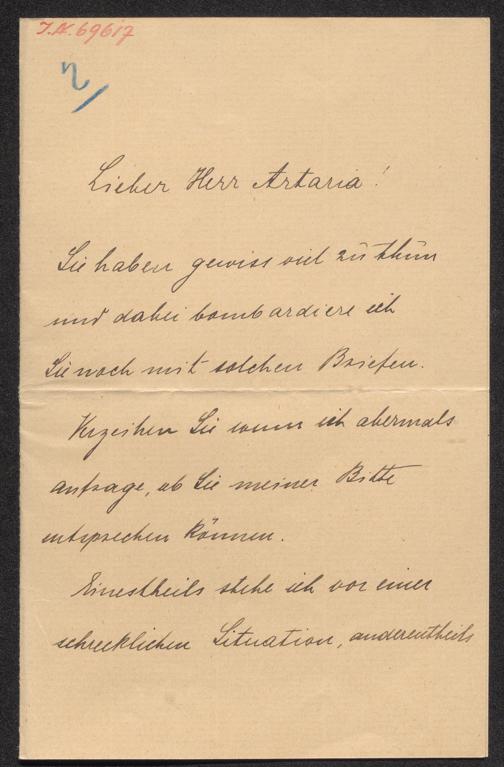 I.N. 69617
Lieber Herr Artaria!
Sie haben gewiss viel zu thun
und dabei bombardiere ich
Sie noch mit solchen Briefen.
Verzeihen Sie wenn ich abermals
anfrage, ob Sie meiner Bitte
entsprechen können.
Einestheils stehe ich vor einer
schrecklichen Situation, anderentheils